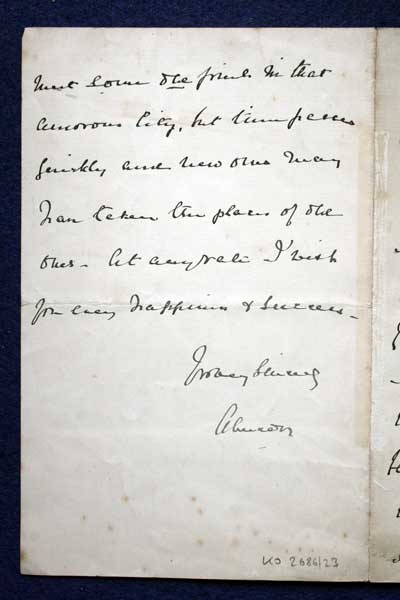 meet some old friends in that
amorous City, but time passes
quickly and new ones may
have taken the places of old
ones - At any rate I wish
you every happiness & success -
Yrs very sincerely
KO 2686/23